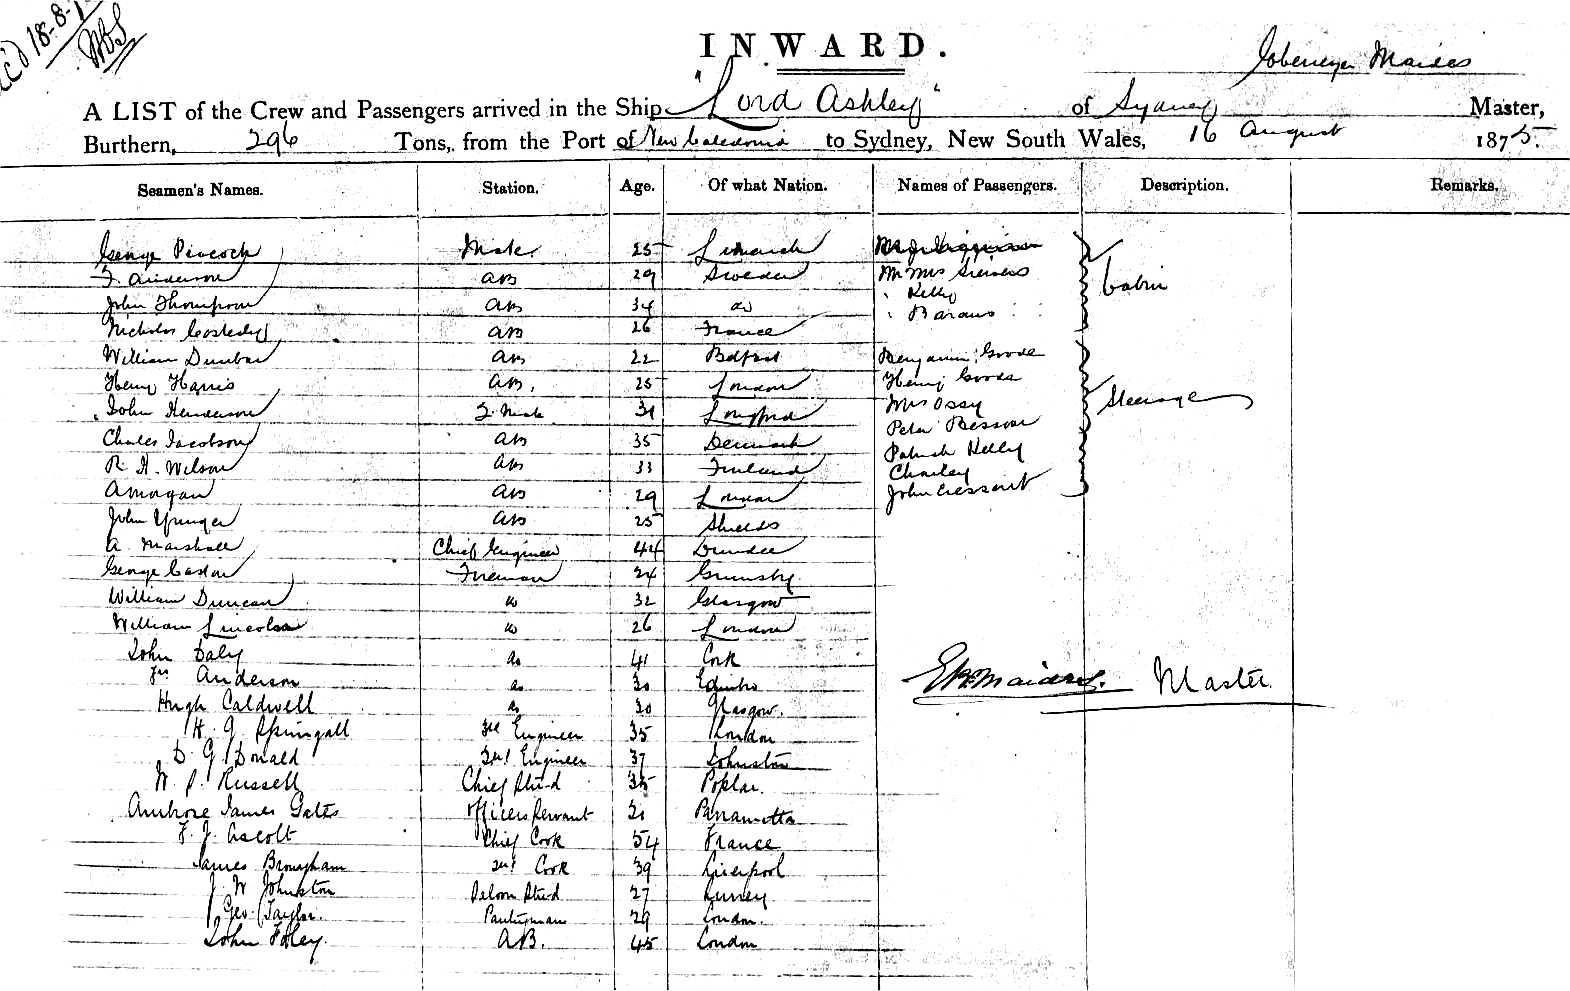 18-8-
INWARD.
A LIST of the Crew and Passengers arrived in the Ship "Lord Ashley" of Sydney Master,
Burthern, 296 Tons, from the Port of New Caledonia to Sydney, New South Wales, 16 August 1875.
Seamen's Names. Station. Age. Of what Nation. Names of Passengers. Description. Remarks.
George Peacock Mate 25
F. Anderson AB 29 Sweden Mr Mrs Cabin
John Thompson AB 34 do Kelly
Nicholas AB 26 France
William Dunbar AB 22 Belfast Benjamin Goode
Henry Harris AB. 25 London Henry Goode
John Henderson 2. Mate Longford Mrs Ossy Steerage
Charles Jacobson AB 35 Denmark Peter
R. H. Wilson AB 33 Finland Patrick Kelly
A Morgan AB 29 London Charley
John Younger AB 25 Shields John
A. Marshall Chief Engineer 44 Dundee
George Caston Fireman 24 Grimsby
William Duncan do 32 Glasgow
William Lincoln do 26 London
John Daly do 41 Cork
Jas Anderson do 30 Edinbro Master.
Hugh Caldwell do 30 Glasgow.
H. G. Springall 3rd Engineer 35 London
D. G. Donald 2nd Engineer 37 Johnston
W. P. Russell Chief Stwd 35 Poplar.
Ambrose James Gates Officers Servant Parramatta
F. J. Ascott Chief Cook 54 France
James Brougham 2nd Cook 39 Liverpool
J. W Johnston Saloon Stwd 27 Surrey
Geo. Taylor. Pantryman 29 London.
John Foley. AB. 45 London